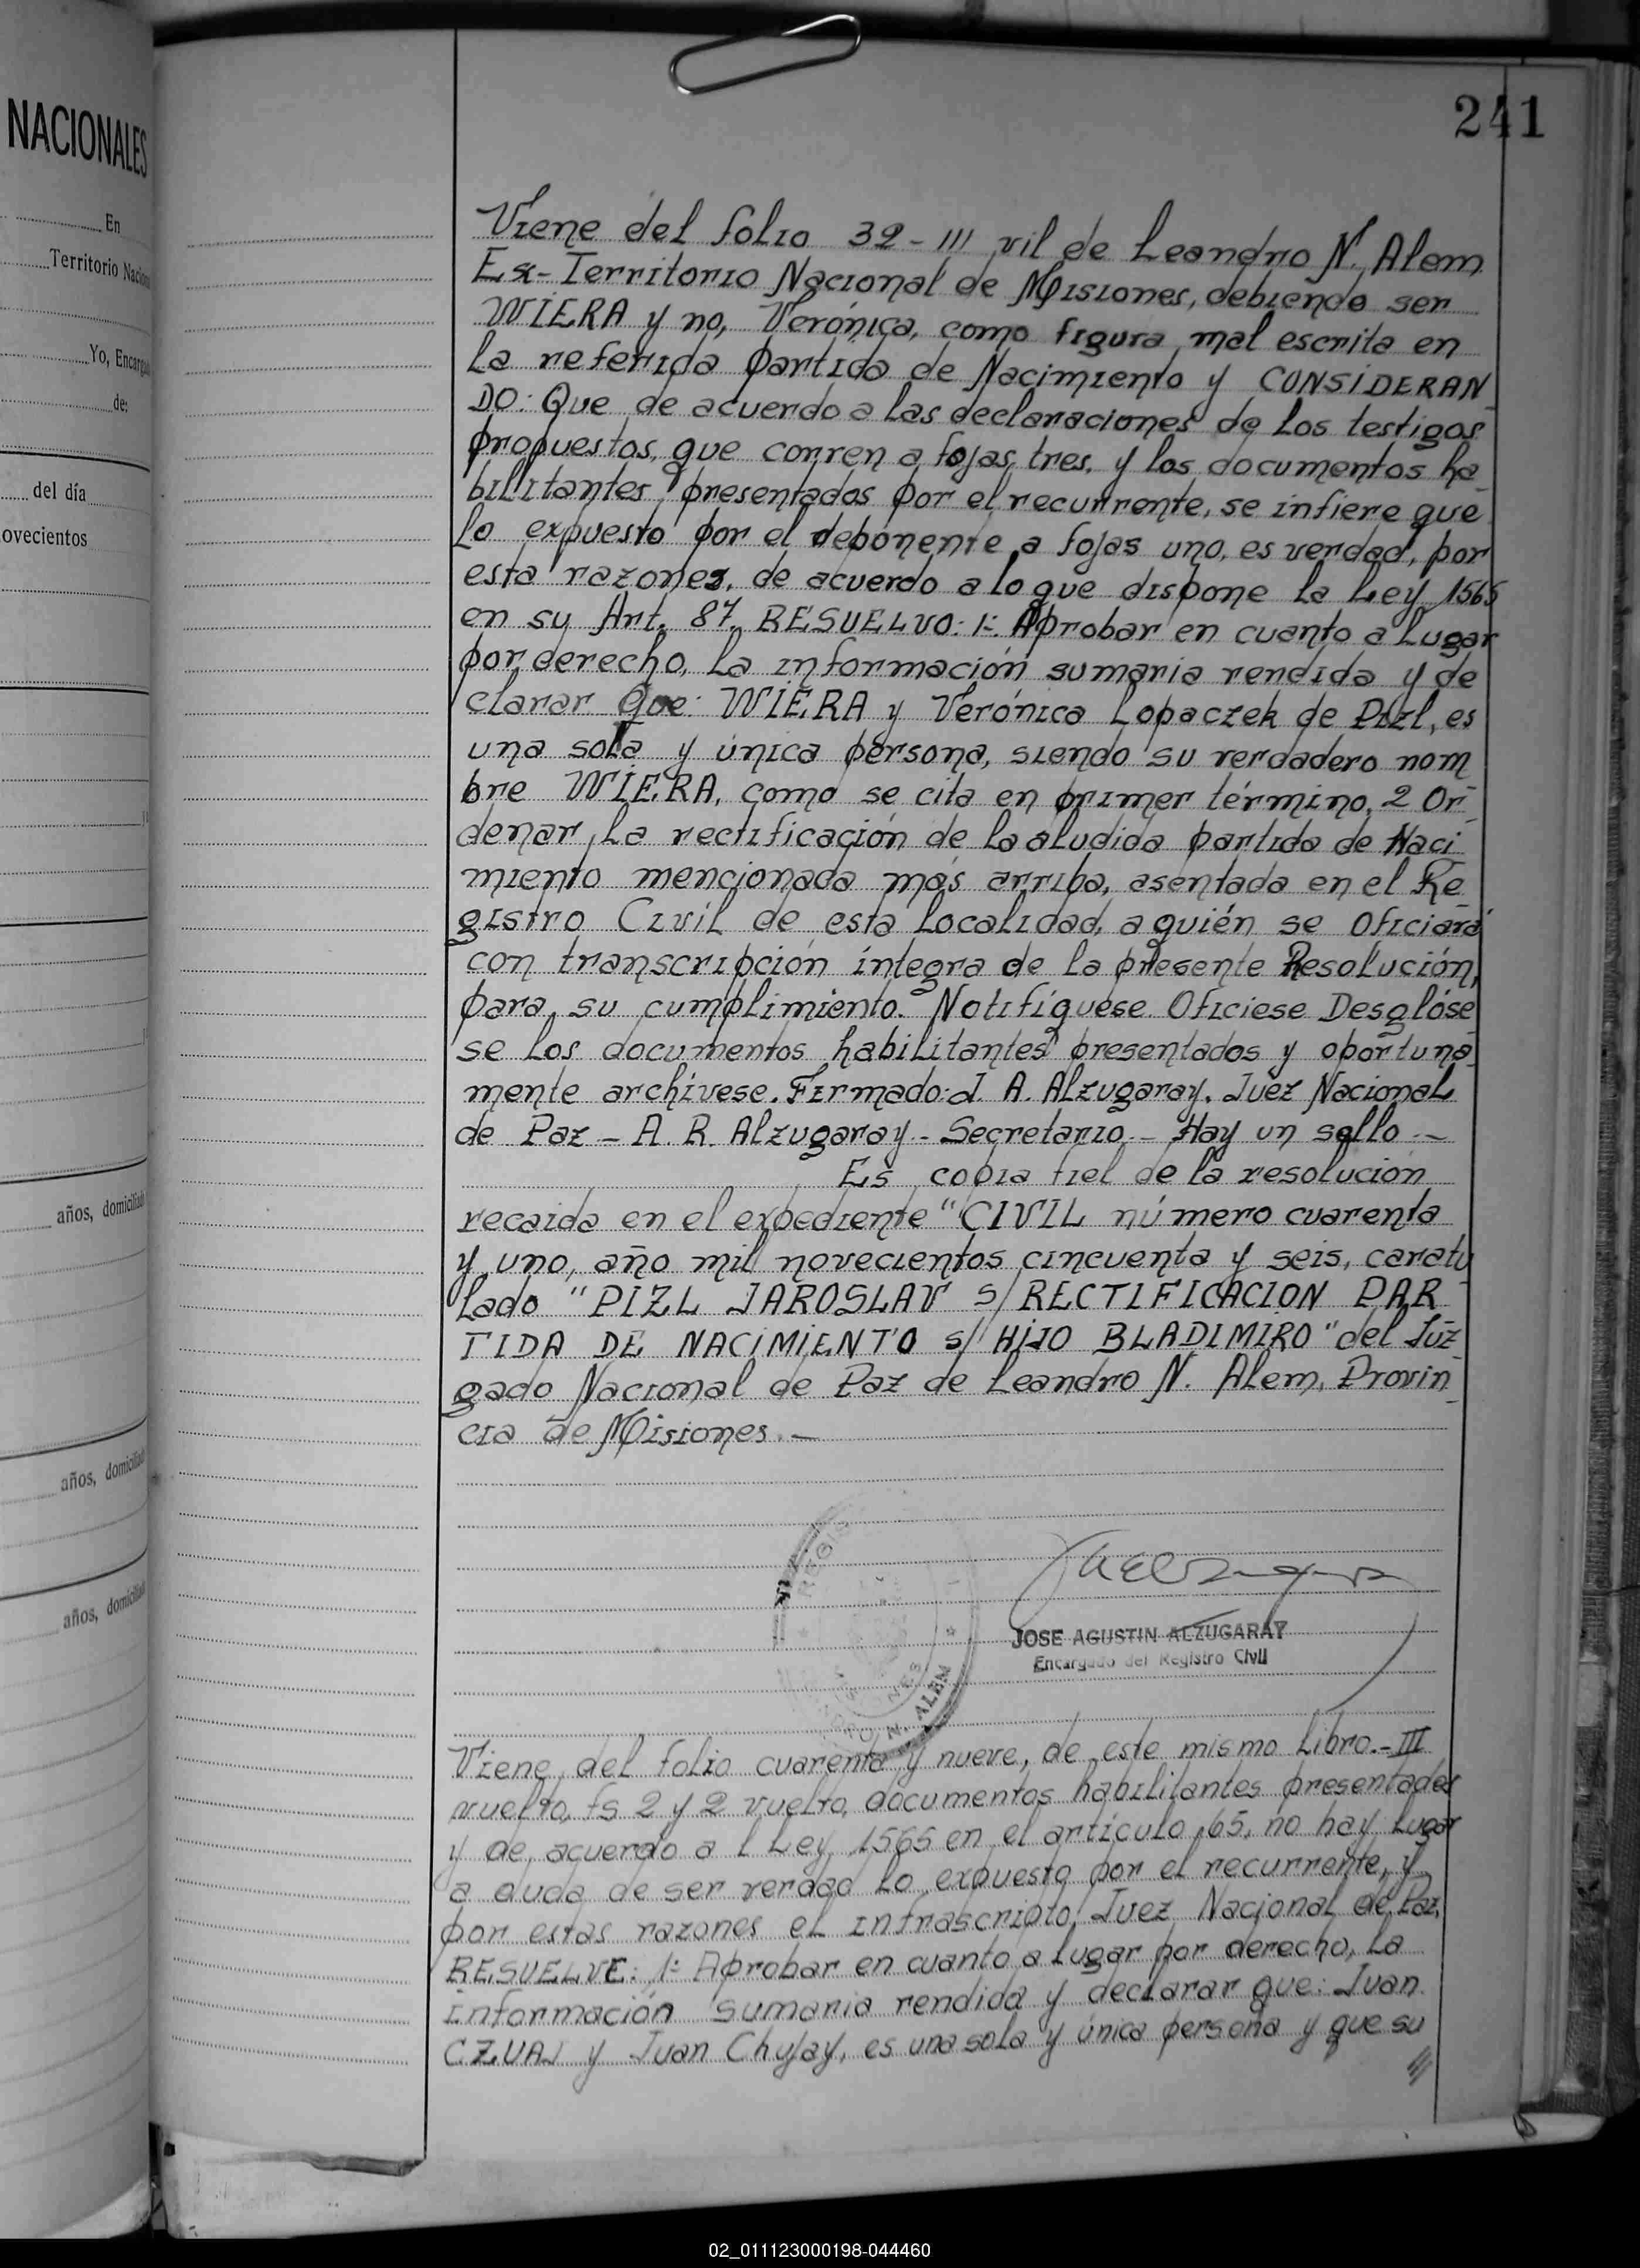 NACIONALES
En
Territorio Nacion
Yo, Encarga
de:
del día
ovecientos
años, domiciliad
años, domiciliad
años, domiciliad
241
Viene del folio 32 - /// vil de Leandro N. Alem
Ex-Territorio Nacional de Misiones, debiendo ser
WIERA y no, Verónica, como figura mal escrita en
la referida partida de Nacimiento y CONSIDERAN
DO: Que de acuerdo a las declaraciones de los testigos
propuestos, que corren a fojas tres, y los documentos ha
bilitantes presentados por el recurrente, se infiere que
lo expuesto por el deponente a fojas uno, es verdad, por
esta razones, de acuerdo a lo que dispone la Ley 1565
en su Art. 87. RESUELVO: 1: Aprobar en cuanto a lugar
por derecho, la información sumaria rendida y de
clarar que: WIERA y Verónica Lopaczek de Pizl, es
una sola y única persona, siendo su verdadero nom
bre WIERA, como se cita en primer término, 2 Or-
denar, la rectificación de la aludida partida de Naci
miento mencionada más arriba, asentada en el Re
gistro Civil de esta localidad, a quién se oficiará
con transcripción íntegra de la presente Resolución,
para su cumplimiento. Notifíquese. Ofíciese Desglóse
se los documentos habilitantes presentados y oportuna
mente archívese. Firmado: J. A. Alzugaray. Juez Nacional
de Paz - A. R. Alzugaray - Secretario - Hay un sello.-
Es copia fiel de la resolución
recaida en el expediente "CIVIL número cuarenta
y uno, año mil novecientos cincuenta y seis, caratu
lado "PIZL JAROSLAV S/ RECTIFICACION PAR
TIDA DE NACIMIENTO s/ HIJO BLADIMIRO" del Júz-
gado Nacional de Paz de Leandro N. Alem, Provin-
cia de Misiones.-
REGIS
N. ALEM
JOSE AGUSTIN ALZUGARAY
Encargado del Registro Civil
Viene del folio cuarenta y nueve, de este mismo Libro.- III
vuelto, fs 2 y 2 vuelto, documentos habilitantes presentades
y de acuerdo a l Ley 1565 en el artículo 65, no hay lugar
a duda de ser verdad lo expuesto por el recurrente, y
por estas razones el infrascripto, Juez Nacional de Paz,
RESUELVE: 1: Aprobar en cuanto a lugar por derecho, la
información sumaria rendida y declarar que: Juan
CZUAJ y Juan Chujay, es una sola y única persona y que su
///
02_011123000198-044460